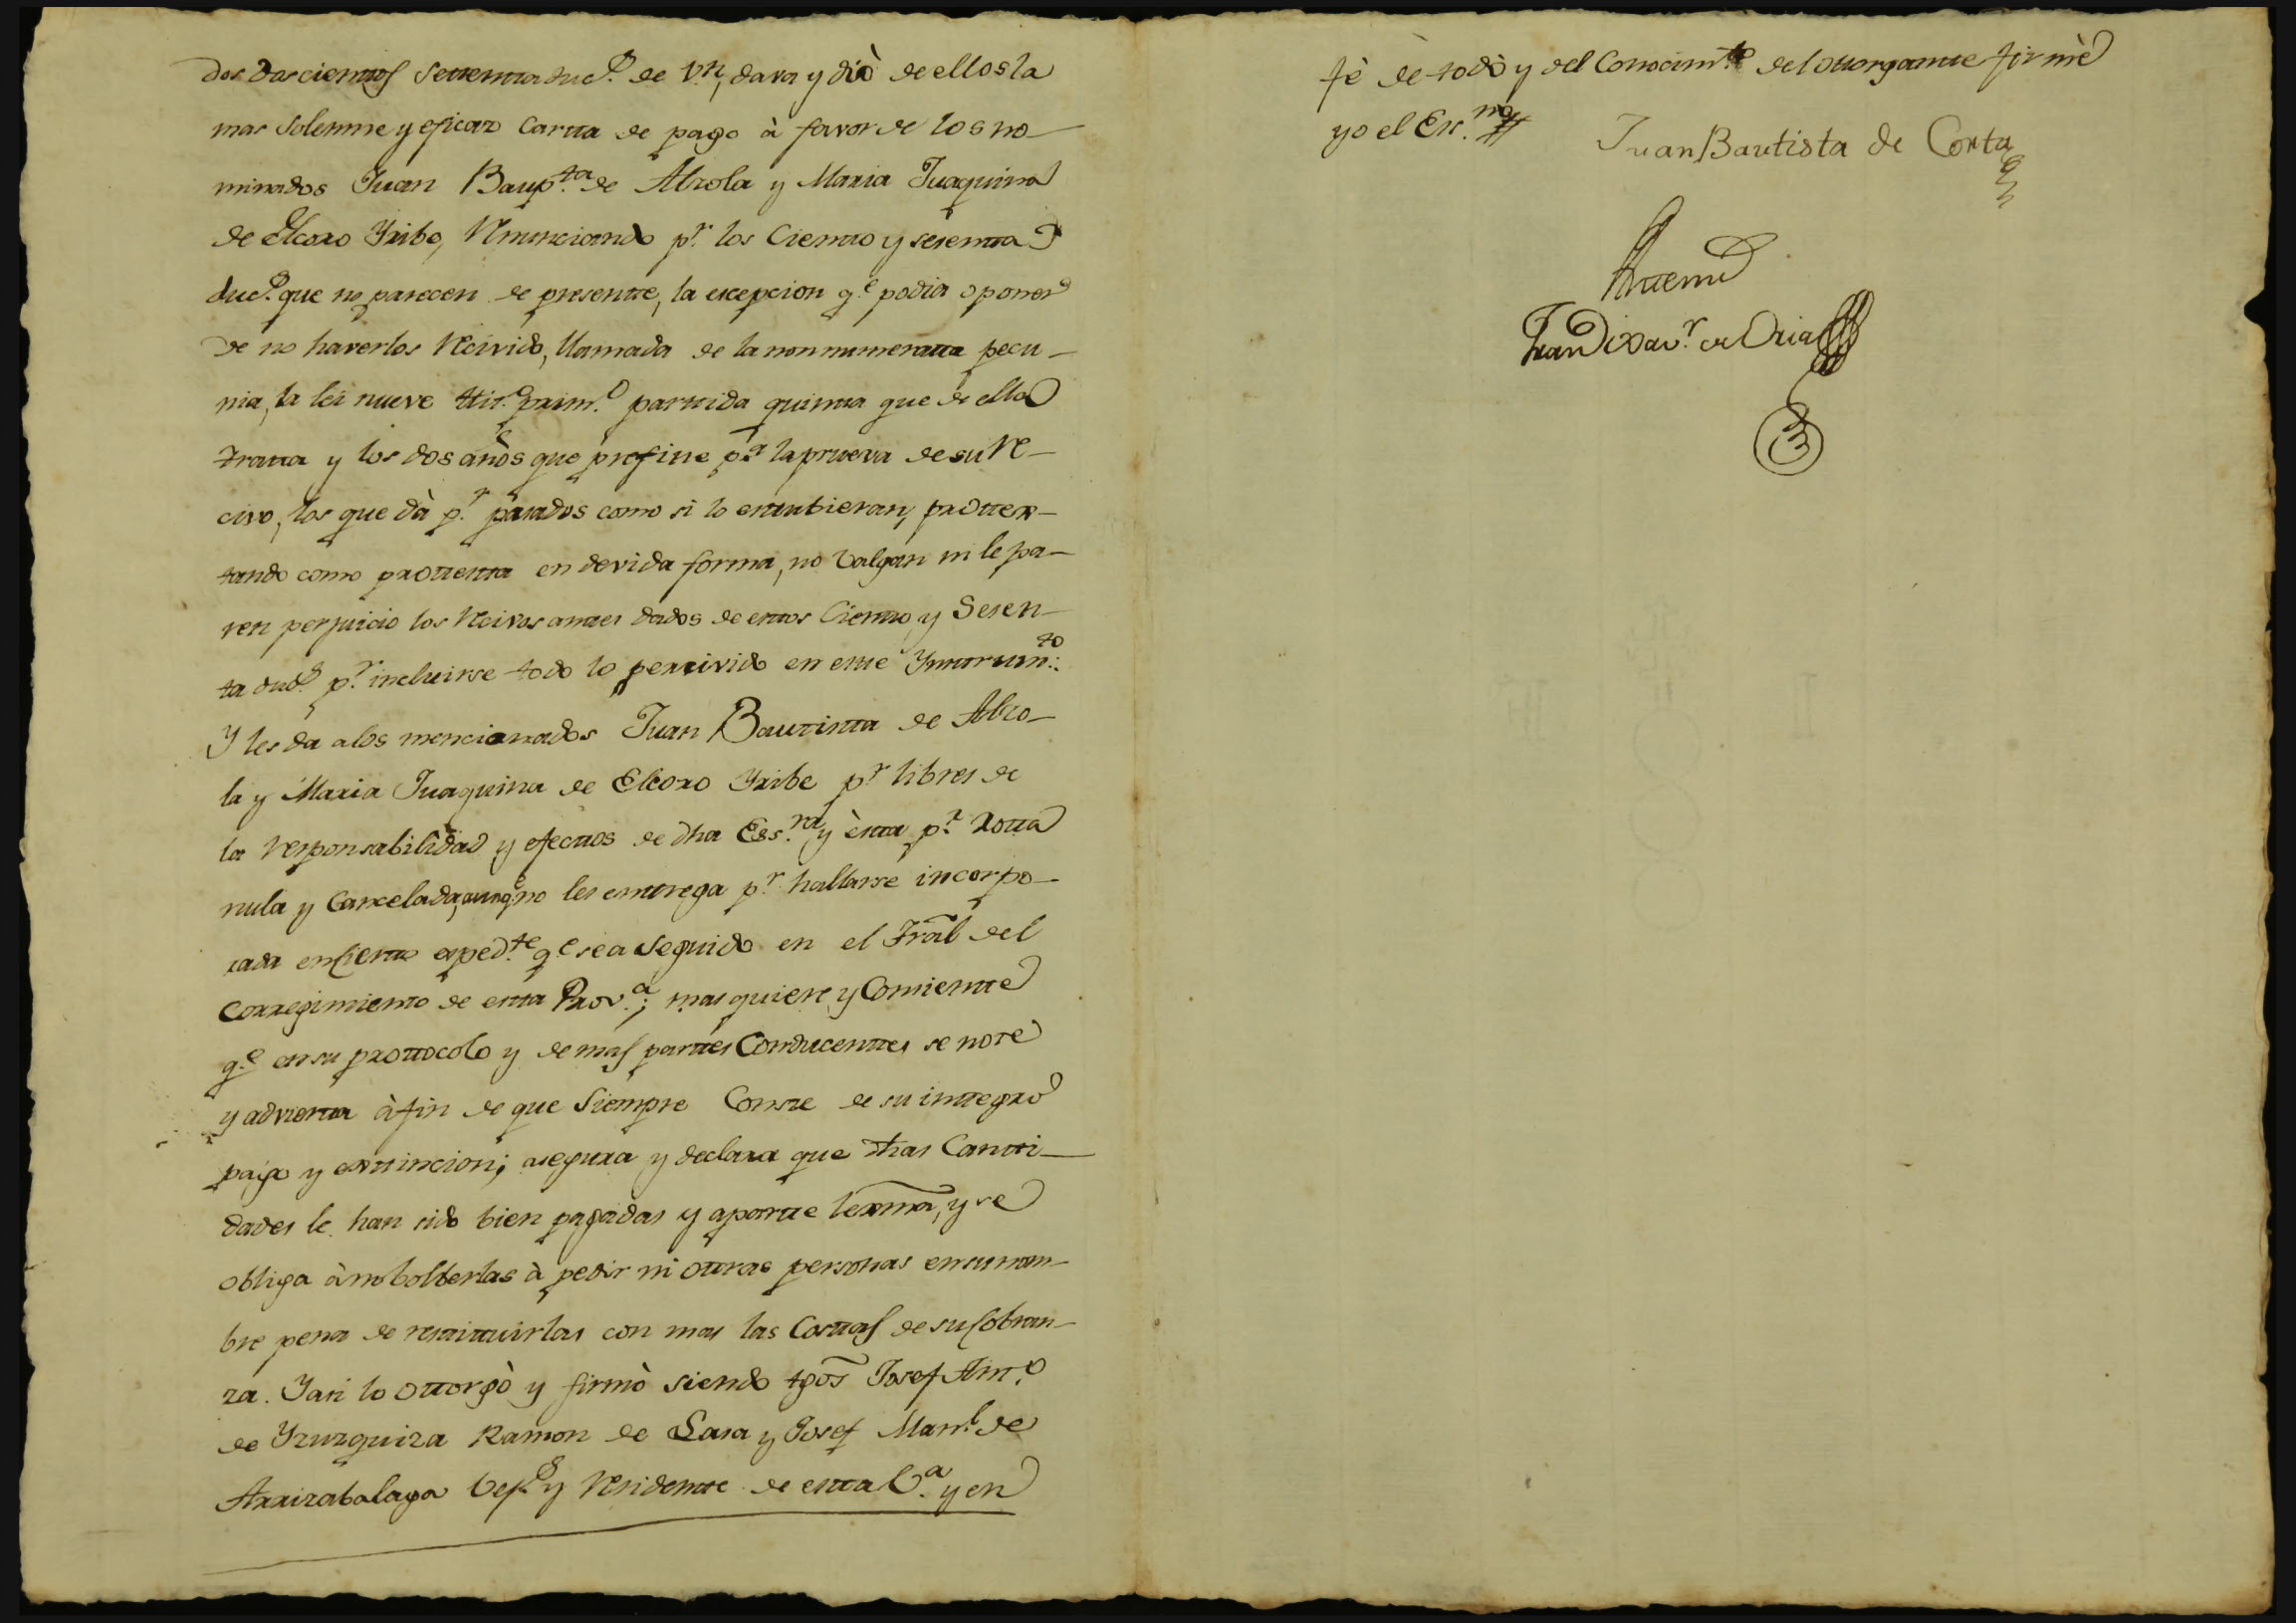 dos dascientos settenta duc.s de Vn, dava y diò de ellos la
mas solemne y eficaz Cartta de pago à favor de los no-
minados Juan Baup.ta de Alzola y Maria Juaquina
de Elcoro Yribe, Renunciando p.r los Ciento y sesentta
duc.s que no parecen de presentte, la excepcion q.e podia oponer
de no haverlos Recivido, llamada de la non numeratta pecu-
nia, la lei nueve ttit.o prim.o parttida quintta que de ello
tratta y los dos años que prefine p.a la prueva de su Re-
civo, los que dà p.r pasados como si lo esttubieran, prottes-
tando como prottestta en devida forma, no valgan ni le pa-
ren perjuicio los Recivos anttes dados de esttos Ciento, y Sesen-
ta duc.s p.r incluirse todo lo percivido en estte Ynsttrum.to:
Y les da a los mencionados Juan Bauttistta de Alzo-
la y Maria Juaquina de Elcoro Yribe p.r libres de
la Responsabilidad y efecttos de dha Ess.ra y èstta p.r Rotta
nula y Cancelada, aunq.e no les enttrega p.r hallarse incorpo-
rada en Ciertto exped.te q.e se a seguido en el Tral del
Corregimientto de estta Prov.a; mas quiere y Consientte
q.e en su prottocolo y demas parttes Conducenttes se note
y adviertta à fin de que Siempre Conste de su inttegro
pago y exttincion; asegura y declara que dhas Cantti-
dades le han sido bien pagadas y a partte lexma, y se
obliga à no bolberlas à pedir ni ottras personas en su nom-
bre pena de resttittuirlas con mas las Costtas de su Cobran-
za. Y asi lo ottorgò y firmò siendo tgos Josef Antt.o
de Yzuzquiza Ramon de Lasa y Josef Man.l de
Arrizabalaga Vez.s y Residentte de estta V.a y en
fè de todo y del Conocim.to del ottorgantte firmè
yo el Ess.no
Juan Bautista de Corta
Antte mi